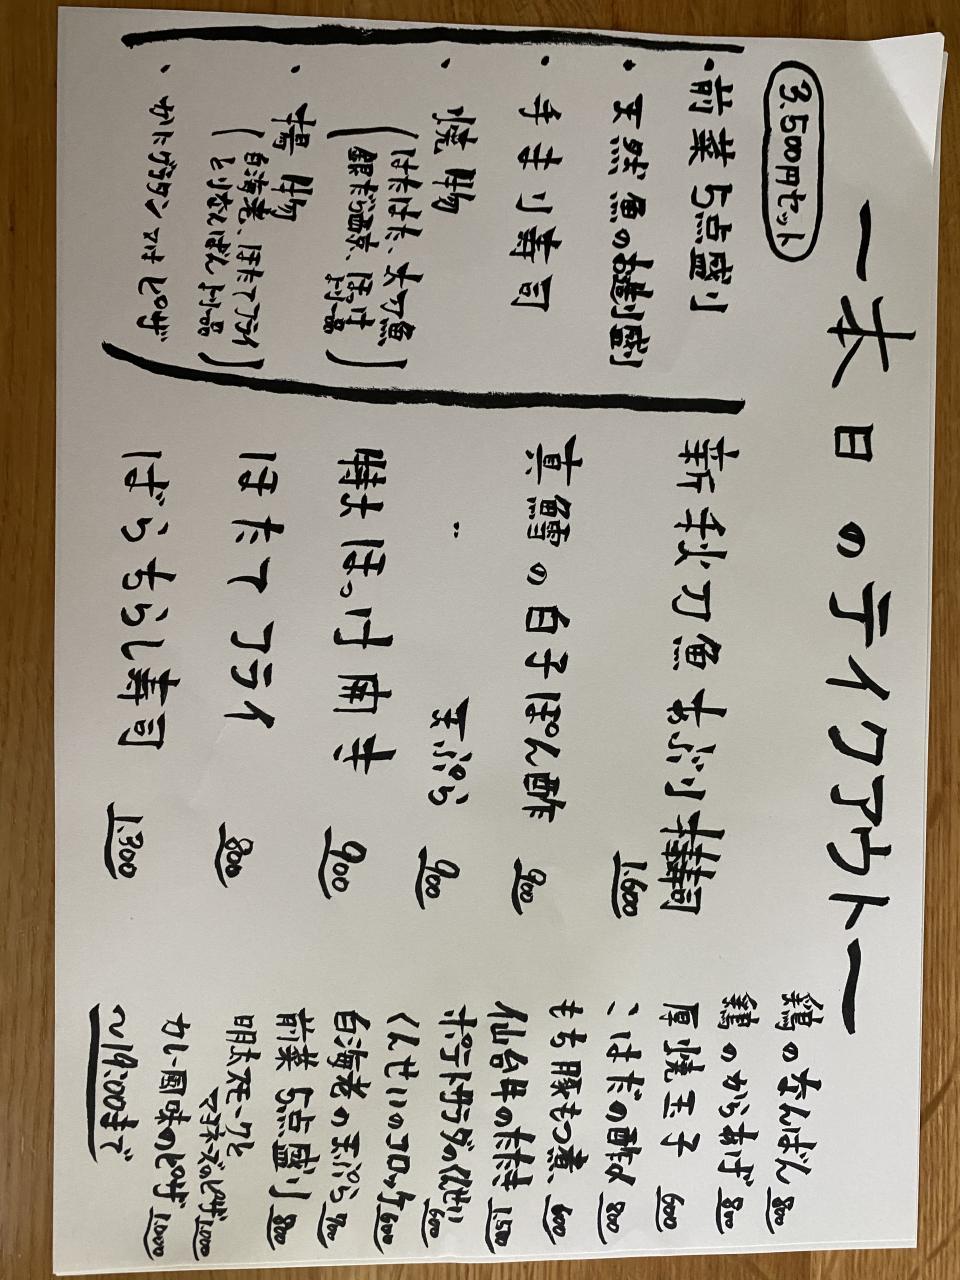 一本日のテイクアウト一
3.500円セット
・前菜5点盛り
・天然魚のお造り盛り
・手まり寿司
・焼物
(はたはた、太刀魚、
銀だら西京、ほっけより一品)
・揚物
(白海老、ほたてフライ
とりなんばんより一品)
・かにグラタン又はピザ
新秋刀魚あぶり棒寿司 1.600
真鱈の白子ぽん酢 900
〃 天ぷら 900
特大ほっけ開き 900
ほたてフライ 800
ばらちらし寿司 1.300
鶏のなんばん 800
鶏のからあげ 800
厚焼玉子 600
こはだの酢〆 800
もち豚もつ煮 600
仙台牛のたたき 1.500
ポテトサラダのくんせい 600
くんせいのコロッケ 600
白海老の天ぷら 900
前菜5点盛り 800
明太スモークと
マヨネーズのピザ 1.000
カレー風味のピザ 1.000
〜19:00まで